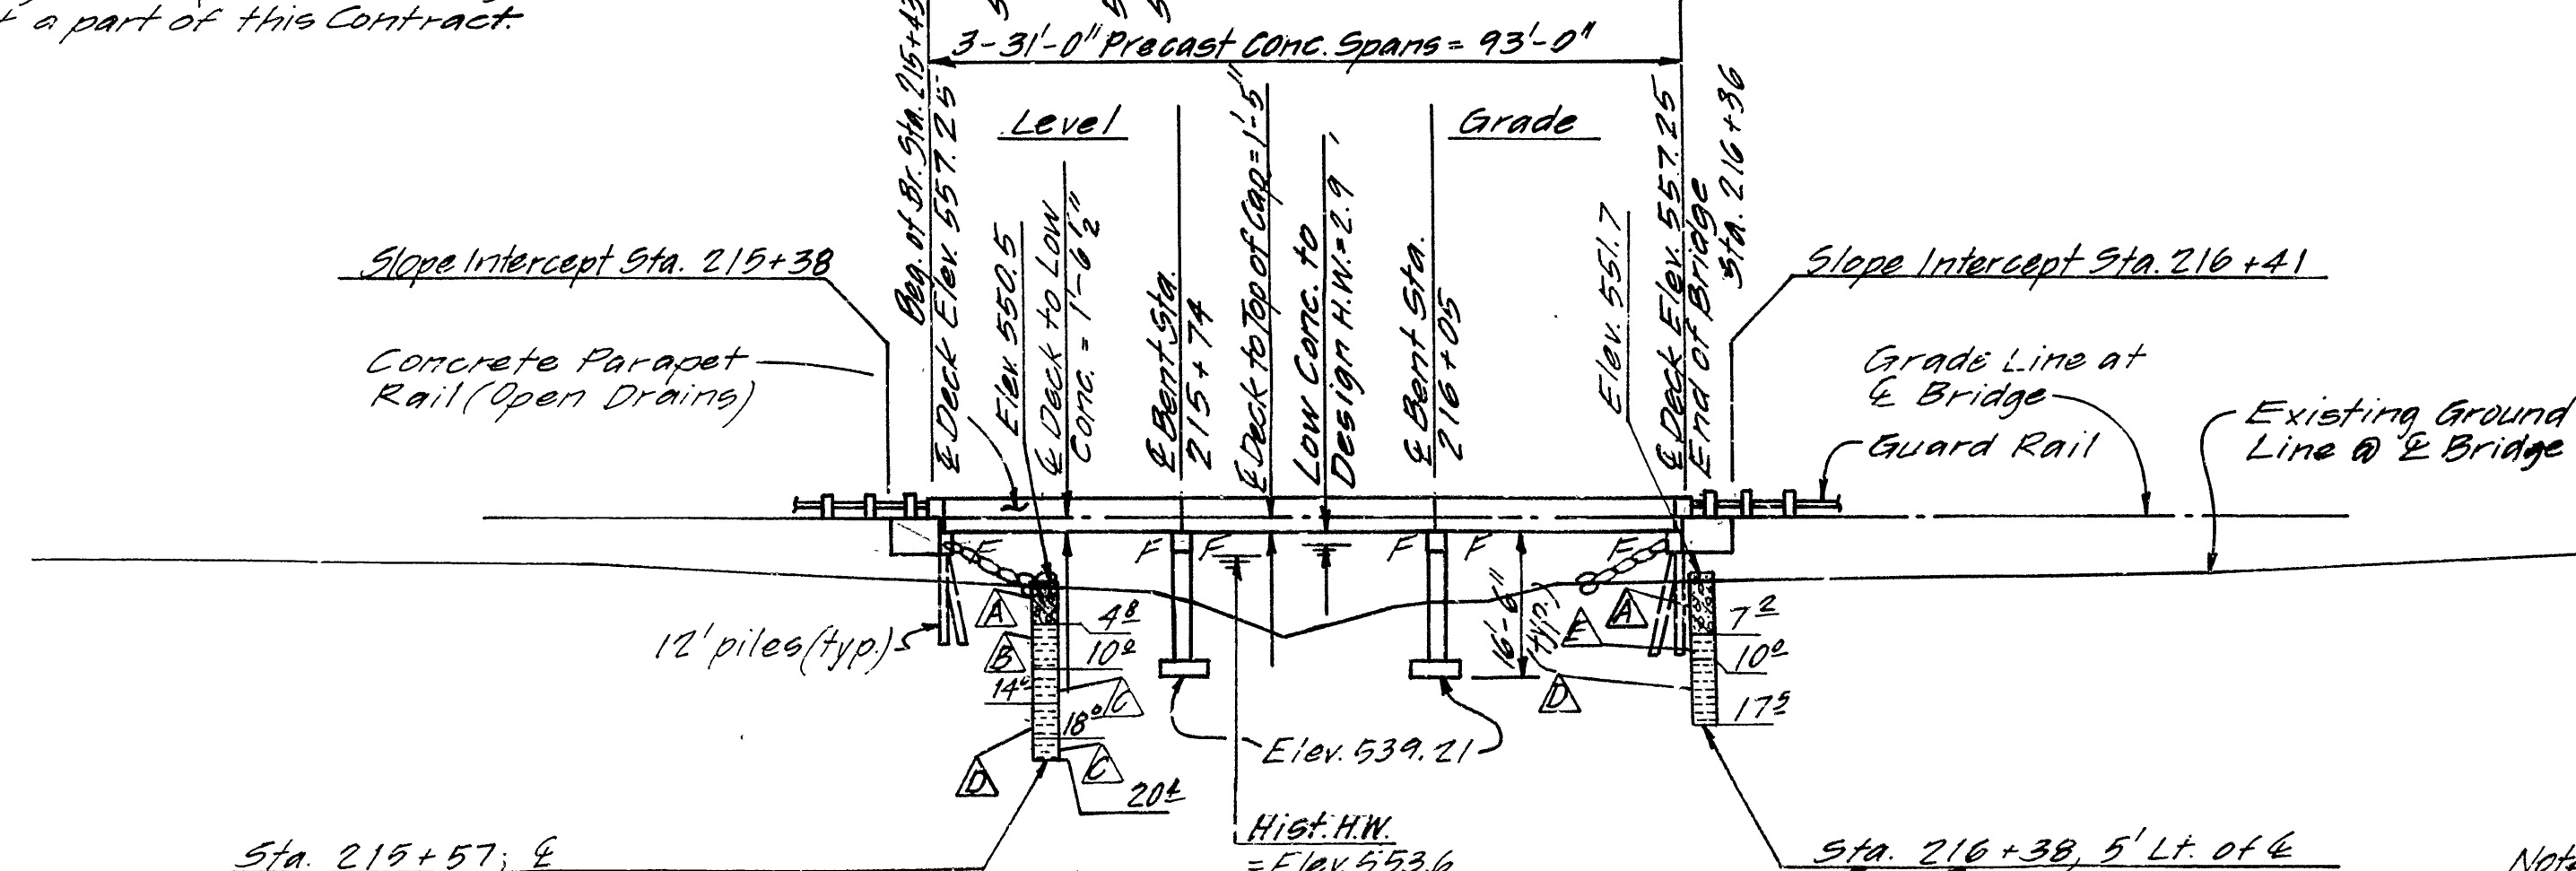 a part of this Contract.
3-31'-0" Precast Conc. Spans = 93'-0"
Level
Grade
Beg. of Br. Sta. 215+43
℄ Deck Elev. 557.25
Elev. 550.5
℄ Deck to Low
Conc. = 1'-6½"
℄ Bent Sta.
215+74
℄ Deck to Top of Cap = 1'-5"
Low Conc. to
Design H.W. = 2.9'
℄ Bent Sta.
216+05
Elev. 551.7
℄ Deck Elev. 557.25
End of Bridge
Sta. 216+36
Slope Intercept Sta. 215+38
Slope Intercept Sta. 216+41
Concrete Parapet
Rail (Open Drains)
Grade Line at
℄ Bridge
Guard Rail
Existing Ground
Line @ ℄ Bridge
F
F
F
F
F
F
12' piles (typ.)
A
B
C
D
C
4⁸
10⁰
14⁰
18⁰
20⁴
16'-6"
(typ.)
A
E
D
7²
10⁰
17⁵
Elev. 539.21
Hist. H.W.
= Elev. 553.6
Sta. 215+57; ℄
Sta. 216+38, 5' Lt. of ℄